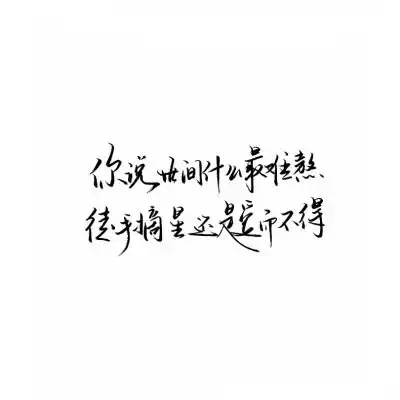 你说世间什么最难熬
徒手摘星还是爱而不得